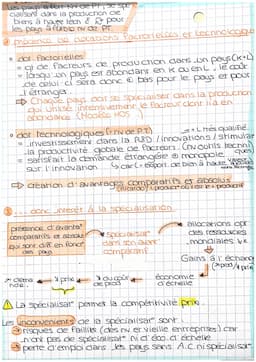 cialisent dans la production de
biens à haute techn & ⊕ pour
les pays à faible niv de PT.
② présence de dotations factorielles et technologiques
• dot factorielles
= qté de facteurs de production dans un pays (K+L)
= lorsqu'un pays est abondant en K ou en L, le coût
de celui ci sera donc ⊕ bas pour le pays et pour
l'étranger.
=> Chaque pays doit se spécialiser dans la production
qui utilise intensivement le facteur dont il a en
abondance (Modèle HOS)
• dot technologiques (= niv de PT) → + L très qualifié
= investissement dans la R&D / innovations / stimuler
la productivité globale de facteurs. (niv outils techni
= satisfait la demande étrangère ⊕ monopole ques)
sur l'innovation ↳ car L + exigent de bien à haute
=> création d'avantages comparatifs et absolus
③ ... donc intérêt à la spécialisation
présence d'avants
comparatifs et absolus
qui sont diff en fonc°
des pays
→ spécialisat°
dans son avant
comparatif
→ allocations opt
des ressources
mondiales
Gains à l'échange
↗ dem
nde
← ↘ prix ← ↘ du coût
de prod
← économie
d'échelle
⚠ La spécialisat° permet la compétitivité prix.
Les inconvénients de la spécialisat° sont :
→ risques de faillite (des niv et vieille entreprises) car
n'ont pas de spécialisat° ni d'éco d'échelle
→ perte d'emploi dans les pays sans A.C ni spécialisat°